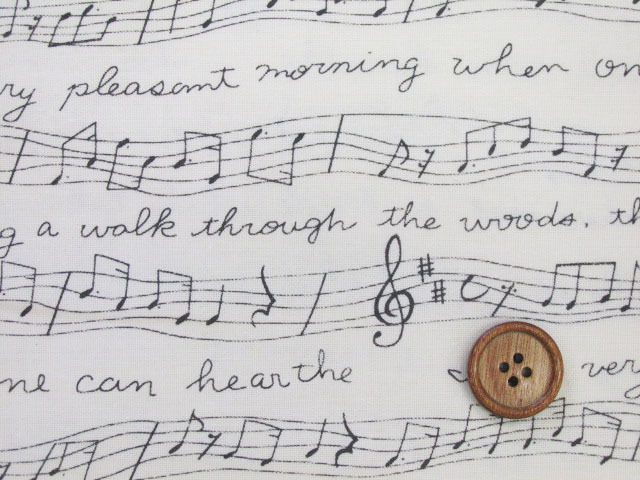 ry pleasant morning when on
g a walk through the woods. th
ne can hear the very